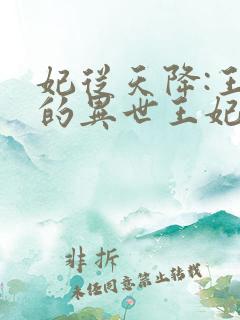 妃從天降:王
的異世王妃
非拆
未任同意禁止转载